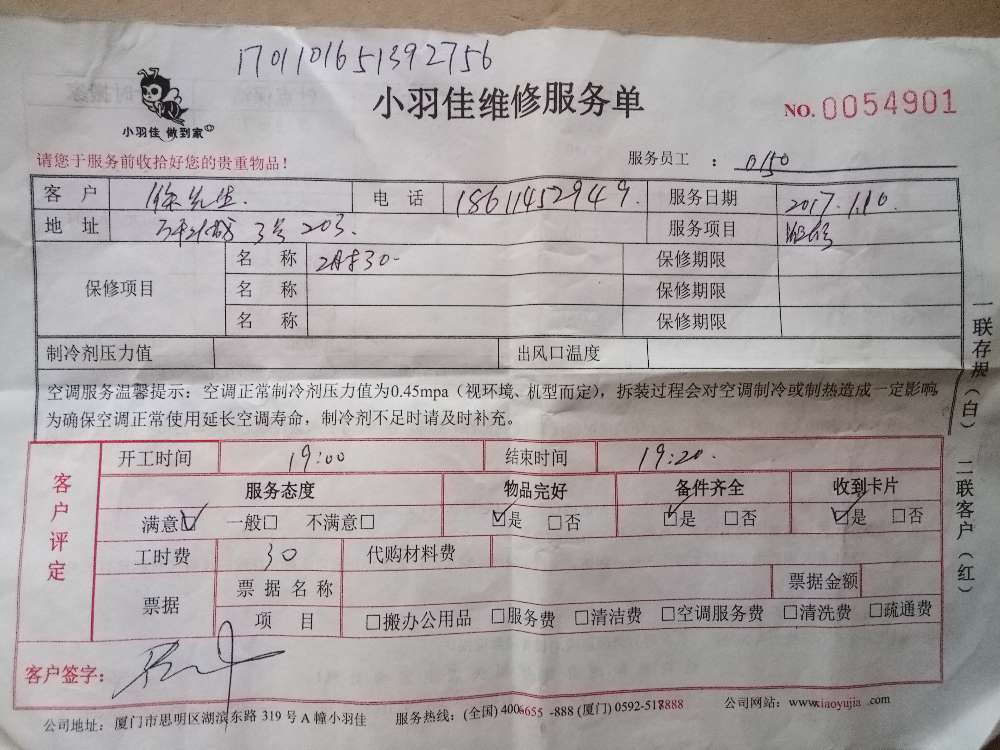 1701101651392756
小羽佳 做到家
小羽佳维修服务单
NO. 0054901
请您于服务前收拾好您的贵重物品！
服务员工 ： 0150
客 户 徐先生. 电 话 18611452949. 服务日期 2017.1.10.
地 址 3号 203. 服务项目 维修
保修项目
名 称 30- 保修期限
名 称 保修期限
名 称 保修期限
制冷剂压力值 出风口温度
空调服务温馨提示：空调正常制冷剂压力值为0.45mpa（视环境、机型而定），拆装过程会对空调制冷或制热造成一定影响
为确保空调正常使用延长空调寿命，制冷剂不足时请及时补充。
一联存根（白） 二联客户（红）
客户评定
开工时间 19:00 结束时间 19:20.
服务态度 物品完好 备件齐全 收到卡片
满意☑ 一般□ 不满意□ ☑是 □否 ☑是 □否 ☑是 □否
工时费 30 代购材料费
票据
票 据 名 称 票据金额
项 目 □搬办公用品 □服务费 □清洁费 □空调服务费 □清洗费 □疏通费
客户签字：
公司地址：厦门市思明区湖滨东路 319 号 A 幢小羽佳 服务热线：(全国) 4006655 -888 (厦门) 0592-518888 公司网站：www.xiaoyujia .com